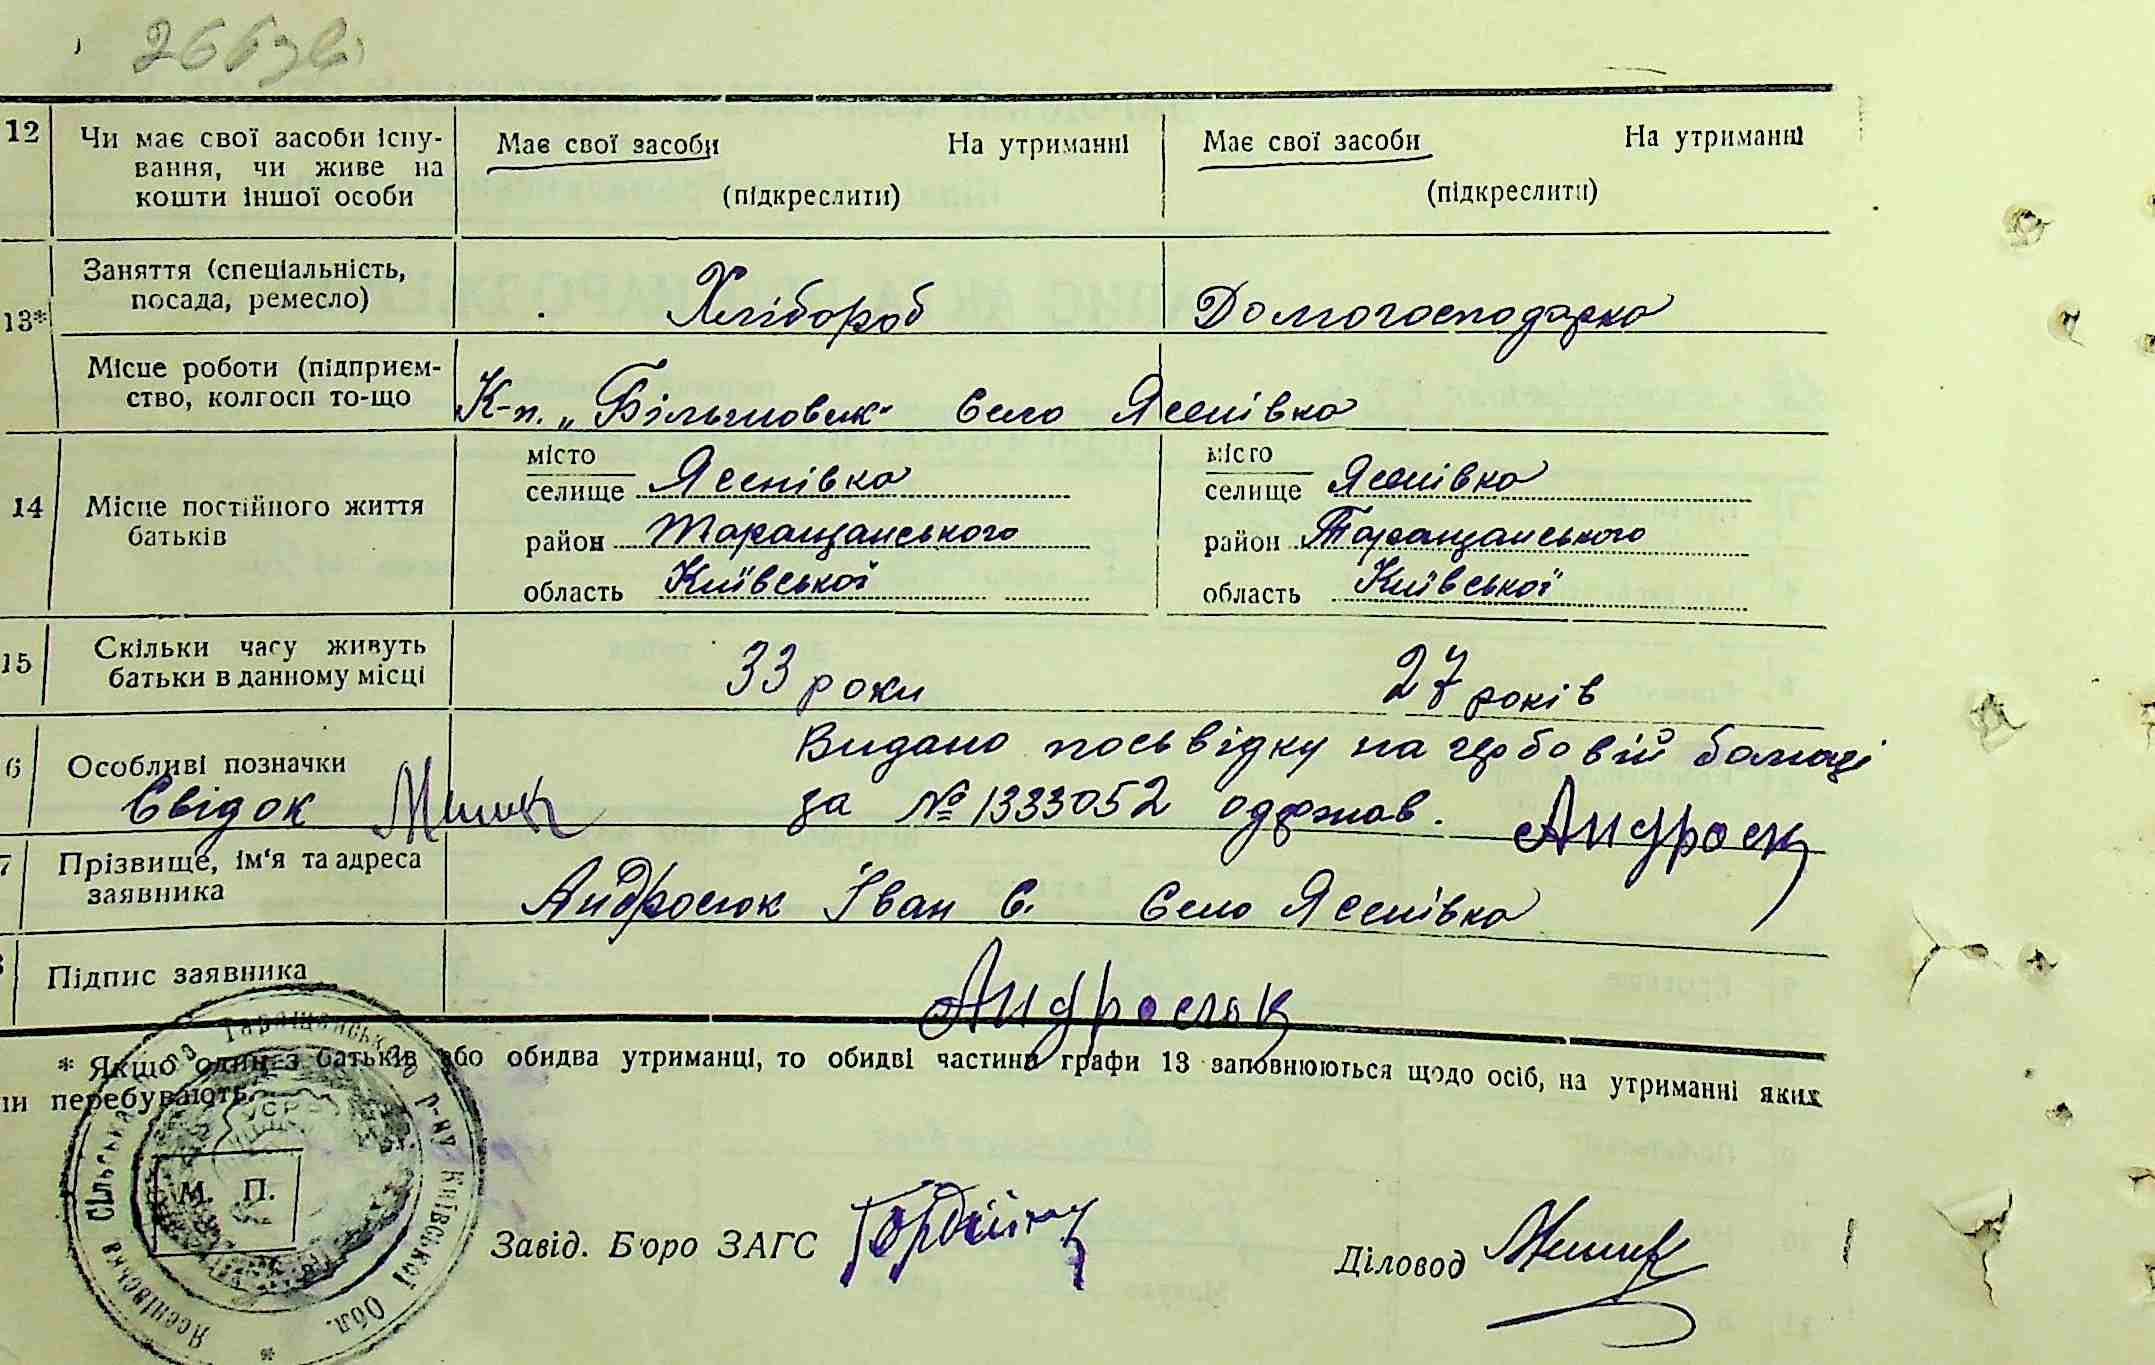 12 Чи має свої засоби існу-
вання, чи живе на
кошти іншої особи
Має свої засоби На утриманні
(підкреслити)
Має свої засоби На утриманні
(підкреслити)
13* Заняття (спеціальність,
посада, ремесло)
Хлібороб Домогосподарка
Місце роботи (підприєм-
ство, колгосп то-що
К-п. „Більшовик" село Ясенівка
14 Місце постійного життя
батьків
місто
селище Ясенівка
район Таращанського
область Київської
місто
селище Ясенівка
район Таращанського
область Київської
15 Скільки часу живуть
батьки в данному місці
33 роки 27 років
6 Особливі позначки
Свідок
Видано посьвідку на гербовій бомазі
за № 1333052 одержав. Андросюк
7 Прізвище, ім'я та адреса
заявника
Андросюк Іван Є. Село Ясенівка
Підпис заявника
Андросюк
* Якщо один з батьків або обидва утриманці, то обидві частини графи 13 заповнюються щодо осіб, на утриманні яких
ни перебувають.
Ясенівська Сільська Рада Таращанського р-ну Київської Обл.
УСРР
М. П.
Завід. Бюро ЗАГС
Діловод